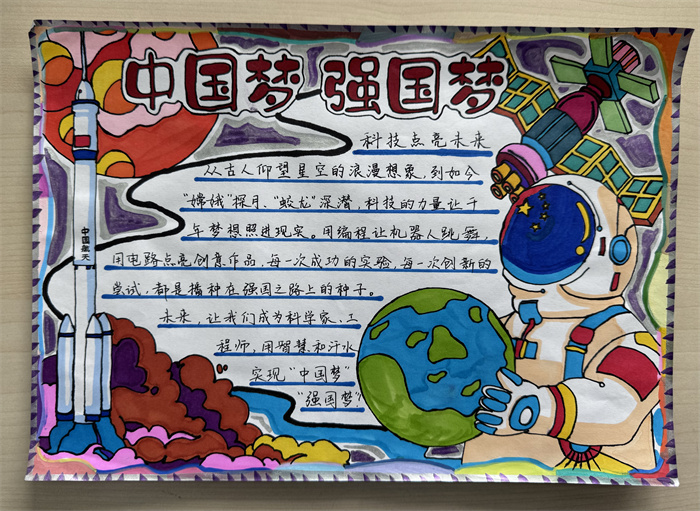 中国梦 强国梦
科技点亮未来
从古人仰望星空的浪漫想象，到如今
“嫦娥”探月、“蛟龙”深潜，科技的力量让千
年梦想照进现实。用编程让机器人跳舞，
用电路点亮创意作品，每一次成功的实验，每一次创新的
尝试，都是播种在强国之路上的种子。
未来，让我们成为科学家、工
程师，用智慧和汗水
实现“中国梦”
“强国梦”
中国航天